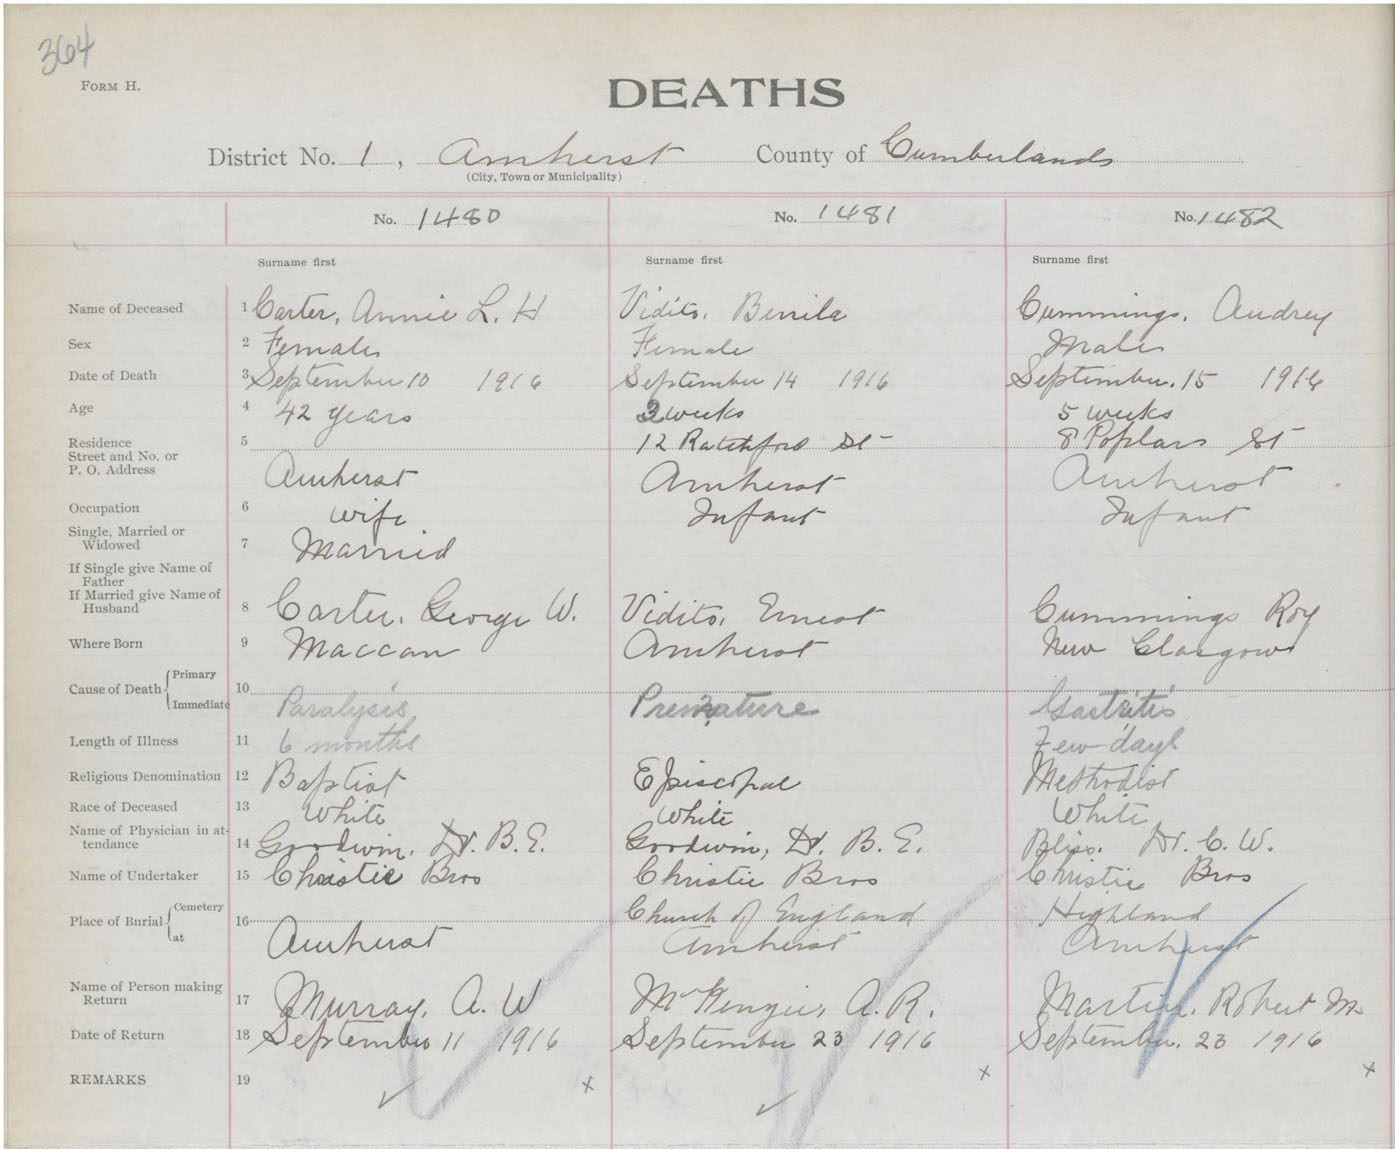 364
FORM H.
DEATHS
District No. 1, Amherst County of Cumberland
(City, Town or Municipality)
No. 1480 No. 1481 No. 1482
Surname first Surname first Surname first
Name of Deceased 1 Carter, Annie L. H Vidito, Benila Cummings, Audrey
Sex 2 Female Female Male
Date of Death 3 September 10 1916 September 14 1916 September. 15 1916
Age 4 42 years 3 weeks 5 weeks
Residence 5 12 Ratchford St 8 Poplar St
Street and No. or
P. O. Address Amherst Amherst Amherst
Occupation 6 wife Infant Infant
Single, Married or
Widowed 7 Married
If Single give Name of
Father
If Married give Name of
Husband 8 Carter, George W. Vidito, Ernest Cummings Roy
Where Born 9 Maccan Amherst New Glasgow
Cause of Death { Primary
Immediate 10 Paralysis Premature Gastritis
Length of Illness 11 6 months Few days
Religious Denomination 12 Baptist Episcopal Methodist
Race of Deceased 13 White White White
Name of Physician in at-
tendance 14 Goodwin, Dr. B. E. Goodwin, Dr. B. E. Bliss. Dr. C. W.
Name of Undertaker 15 Christie Bros Christie Bros Christie Bros
Place of Burial { Cemetery 16 Church of England Highland
at Amherst Amherst Amherst
Name of Person making
Return 17 Murray, A. W McKenzie, A. R. Martin, Robert M.
Date of Return 18 September 11 1916 September 23 1916 September. 23 1916
REMARKS 19 x x x